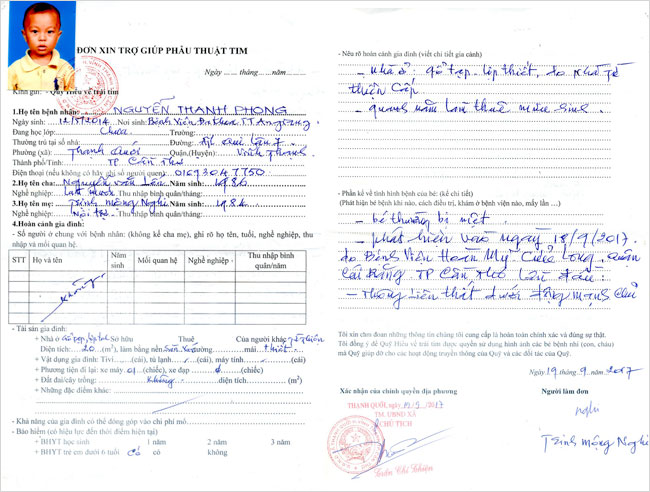 ĐƠN XIN TRỢ GIÚP PHẪU THUẬT TIM
Ngày ........ tháng ........ năm ..........
Kính gửi: Quỹ Hiểu về trái tim
1.Họ tên bệnh nhân: NGUYỄN THANH PHONG
Ngày sinh: 12/5/2014 Nơi sinh: Bệnh Viện Đa Khoa TT An Giang
Đang học lớp: Chưa Trường:
Thường trú tại số nhà: Đường:
Phường (xã): Thạnh Quới Quận,(Huyện): Vĩnh Thạnh
Thành phố/Tỉnh: TP Cần Thơ
Điện thoại (nếu không có hãy ghi số người quen): 01693047750
2.Họ tên cha: Nguyễn Văn Lên Năm sinh: 1986
Nghề nghiệp: Làm mướn Thu nhập bình quân/tháng:
3.Họ tên mẹ: Trịnh Mộng Nghi Năm sinh: 1984
Nghề nghiệp: Nội trợ Thu nhập bình quân/tháng:
4.Hoàn cảnh gia đình:
- Số người ở chung với bệnh nhân: (không kể cha mẹ), ghi rõ họ tên, tuổi, nghề nghiệp, thu nhập và mối quan hệ.
STT Họ và tên Năm sinh Mối quan hệ Nghề nghiệp Thu nhập bình quân/năm
Không
- Tài sản gia đình:
+ Nhà ở Sở hữu Thuê Của người khác
Diện tích: 20 (m²), làm bằng nền tường mái thiếc
+ Vật dụng gia đình: Tivi (cái), tủ lạnh (cái), máy tính (cái)
+ Phương tiện đi lại: xe máy 01 (chiếc), xe đạp (chiếc)
+ Đất đai/cây trồng: Không diện tích (m²)
+ Những đặc điểm khác:
- Khả năng của gia đình có thể đóng góp vào chi phí mổ
- Bảo hiểm (có hiệu lực đến thời điểm hiện tại)
+ BHYT học sinh 1 năm 2 năm 3 năm
+ BHYT trẻ em dưới 6 tuổi có không
- Nêu rõ hoàn cảnh gia đình (viết chi tiết gia cảnh)
- Nhà ở: gỗ tạp, lợp thiếc, do nhà
Thiên Cấp.
- quanh năm làm thuê mưu sinh
- Phần kể về tình hình bệnh của bé: (kể chi tiết)
(Phát hiện bệnh khi nào, cách điều trị, khám ở bệnh viện nào, mấy lần ...)
- bé thường bị mệt
- phát hiện vào ngày 18/9/2017.
do Bệnh Viện Hoàn Mỹ Cửu Long, quận
Cái Răng, TP Cần Thơ lần đầu:
- Thông liên thất dưới động mạch chủ
Tôi xin cam đoan những thông tin chúng tôi cung cấp là hoàn toàn chính xác và đúng sự thật.
Tôi đồng ý để Quỹ Hiểu về trái tim được quyền sử dụng hình ảnh các bé bệnh nhi (con, cháu) mà Quỹ giúp đỡ cho các hoạt động truyền thông của Quỹ và các đối tác của Quỹ.
Ngày 19 tháng 9 năm 2017
Xác nhận của chính quyền địa phương
THẠNH QUỚI, ngày 19/9/2017
TM. UBND XÃ
CHỦ TỊCH
Người làm đơn
nghi
Trịnh Mộng Nghi